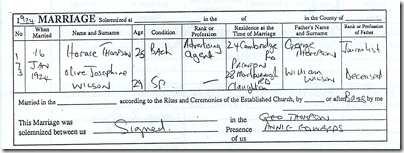 1924 MARRIAGE Solemnized at in the of in the County of
No When Married Name and Surname Age Condition Rank or Profession Residence at the Time of Marriage Father's Name and Surname Rank or Profession of Father
173 16 JAN 1924 Horace THOMPSON 25 BACH Advertising Agent 24 Cambridge Rd George THOMPSON Journalist
Olive Josephine WILSON 29 SP. — 28 Marlborough Rd Claughton William WILSON Deceased
Married in the according to the Rites and Ceremonies of the Established Church, by or after Banns by me
This Marriage was solemnized between us Signed. in the Presence of us GEO THOMPSON
ANNIE EDWARDS